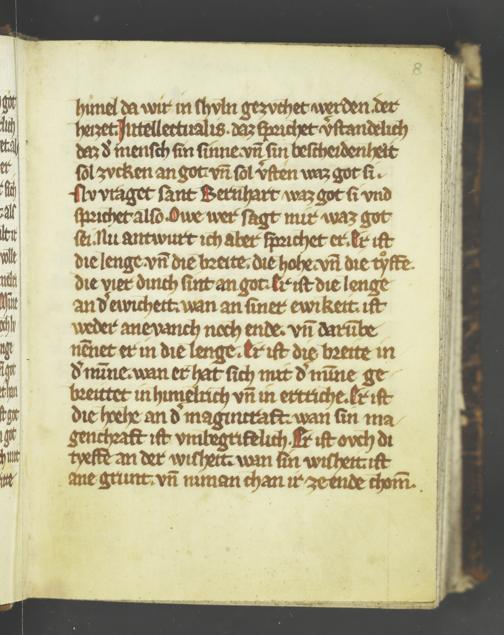 8
himel da wir in svln gezvchet werden. der
heizet Intellectualis. daz sprichet v̓standelich
daz d̓ mensch sin sinne. vn̄ sin bescheidenheit
sol zvcken an got. vn̄ sol v̓sten waz got si.
Nv vraget sant Bernhart waz got si vnd
sprichet also. Owe wer sagt mir waz got
sei. Nu antwurt ich aber sprichet er. Er ist
die lenge. vn̄ die breite. die hohe. vn̄ die tyͤffe.
die vier dinch sint an got. Er ist die lenge
an d̓ ewicheit. wan an siner ewikeit. ist
weder anevanch noch ende. vn̄ darūbe
nēnet er in die lenge. Er ist die breite in
d̓ minne. wan er hat sich mit d̓ minne ge
breittet in himelrich vn̄ in ertriche. Er ist
die hoehe an d̓ magincraft. wan sin ma
gencheaft ist vmbegrifelich. Er ist ovch di
tyeffe an der wisheit. wan sin wisheit. ist
ane grunt. vn̄ niman chan ir ze ende chom̄.